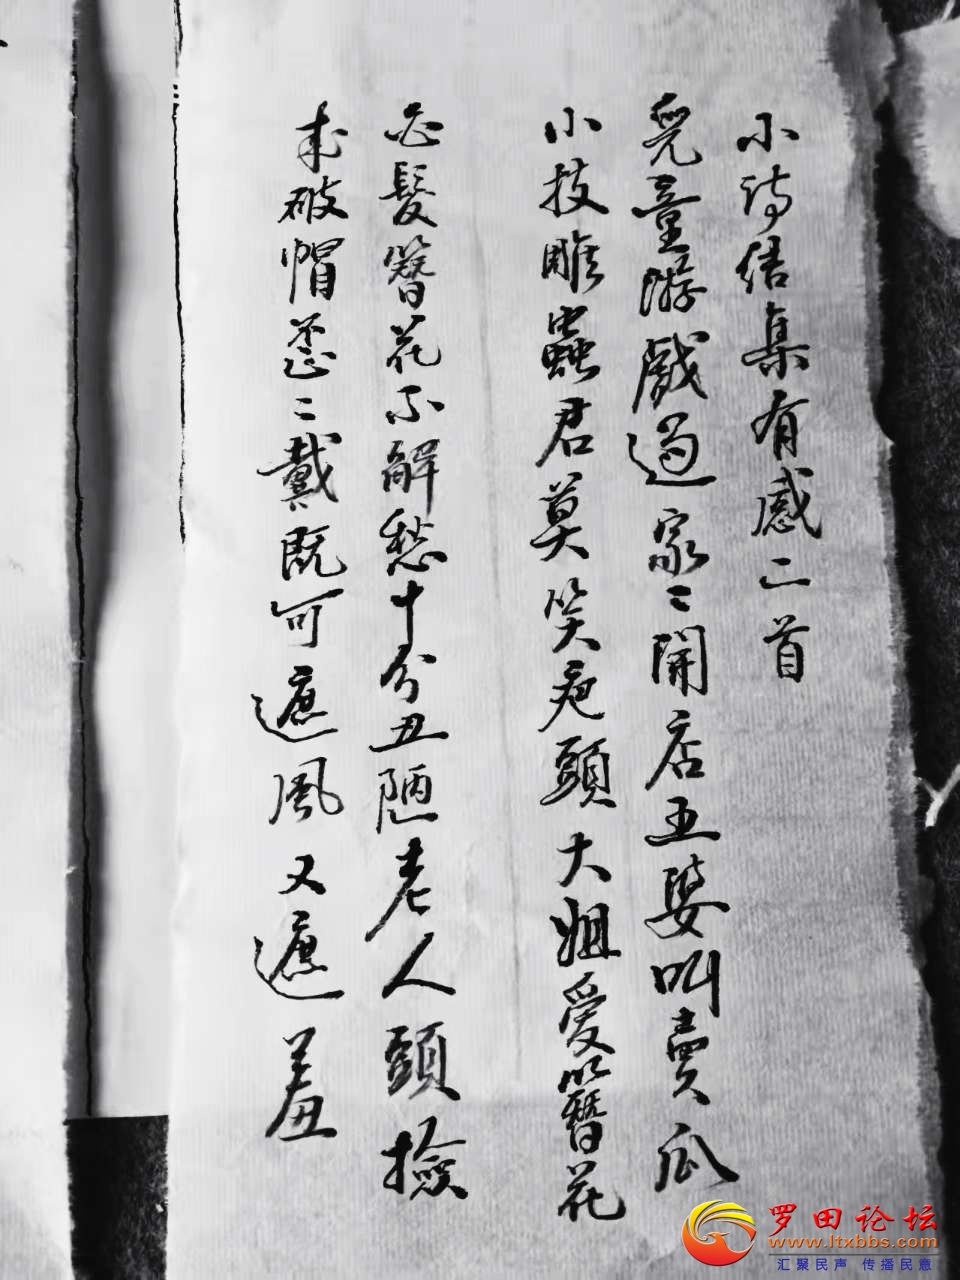 小诗结集有感二首
兒童游戲過家〻開店王婆叫賣瓜
小技雕蟲君莫笑疤頭大姐愛簪花
白髮簪花不解愁十分丑陋老人頭撿
来破帽歪〻戴既可遮風又遮羞
罗田论坛
www.ltxbbs.com
汇聚民声 传播民意